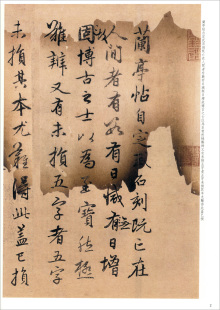 蘭亭帖自定武石刻既亡在
人間者有數有日減無日增
故博古之士以爲至寶然極
難辯又有未損五字者五字
未損其本尤難得此蓋已損